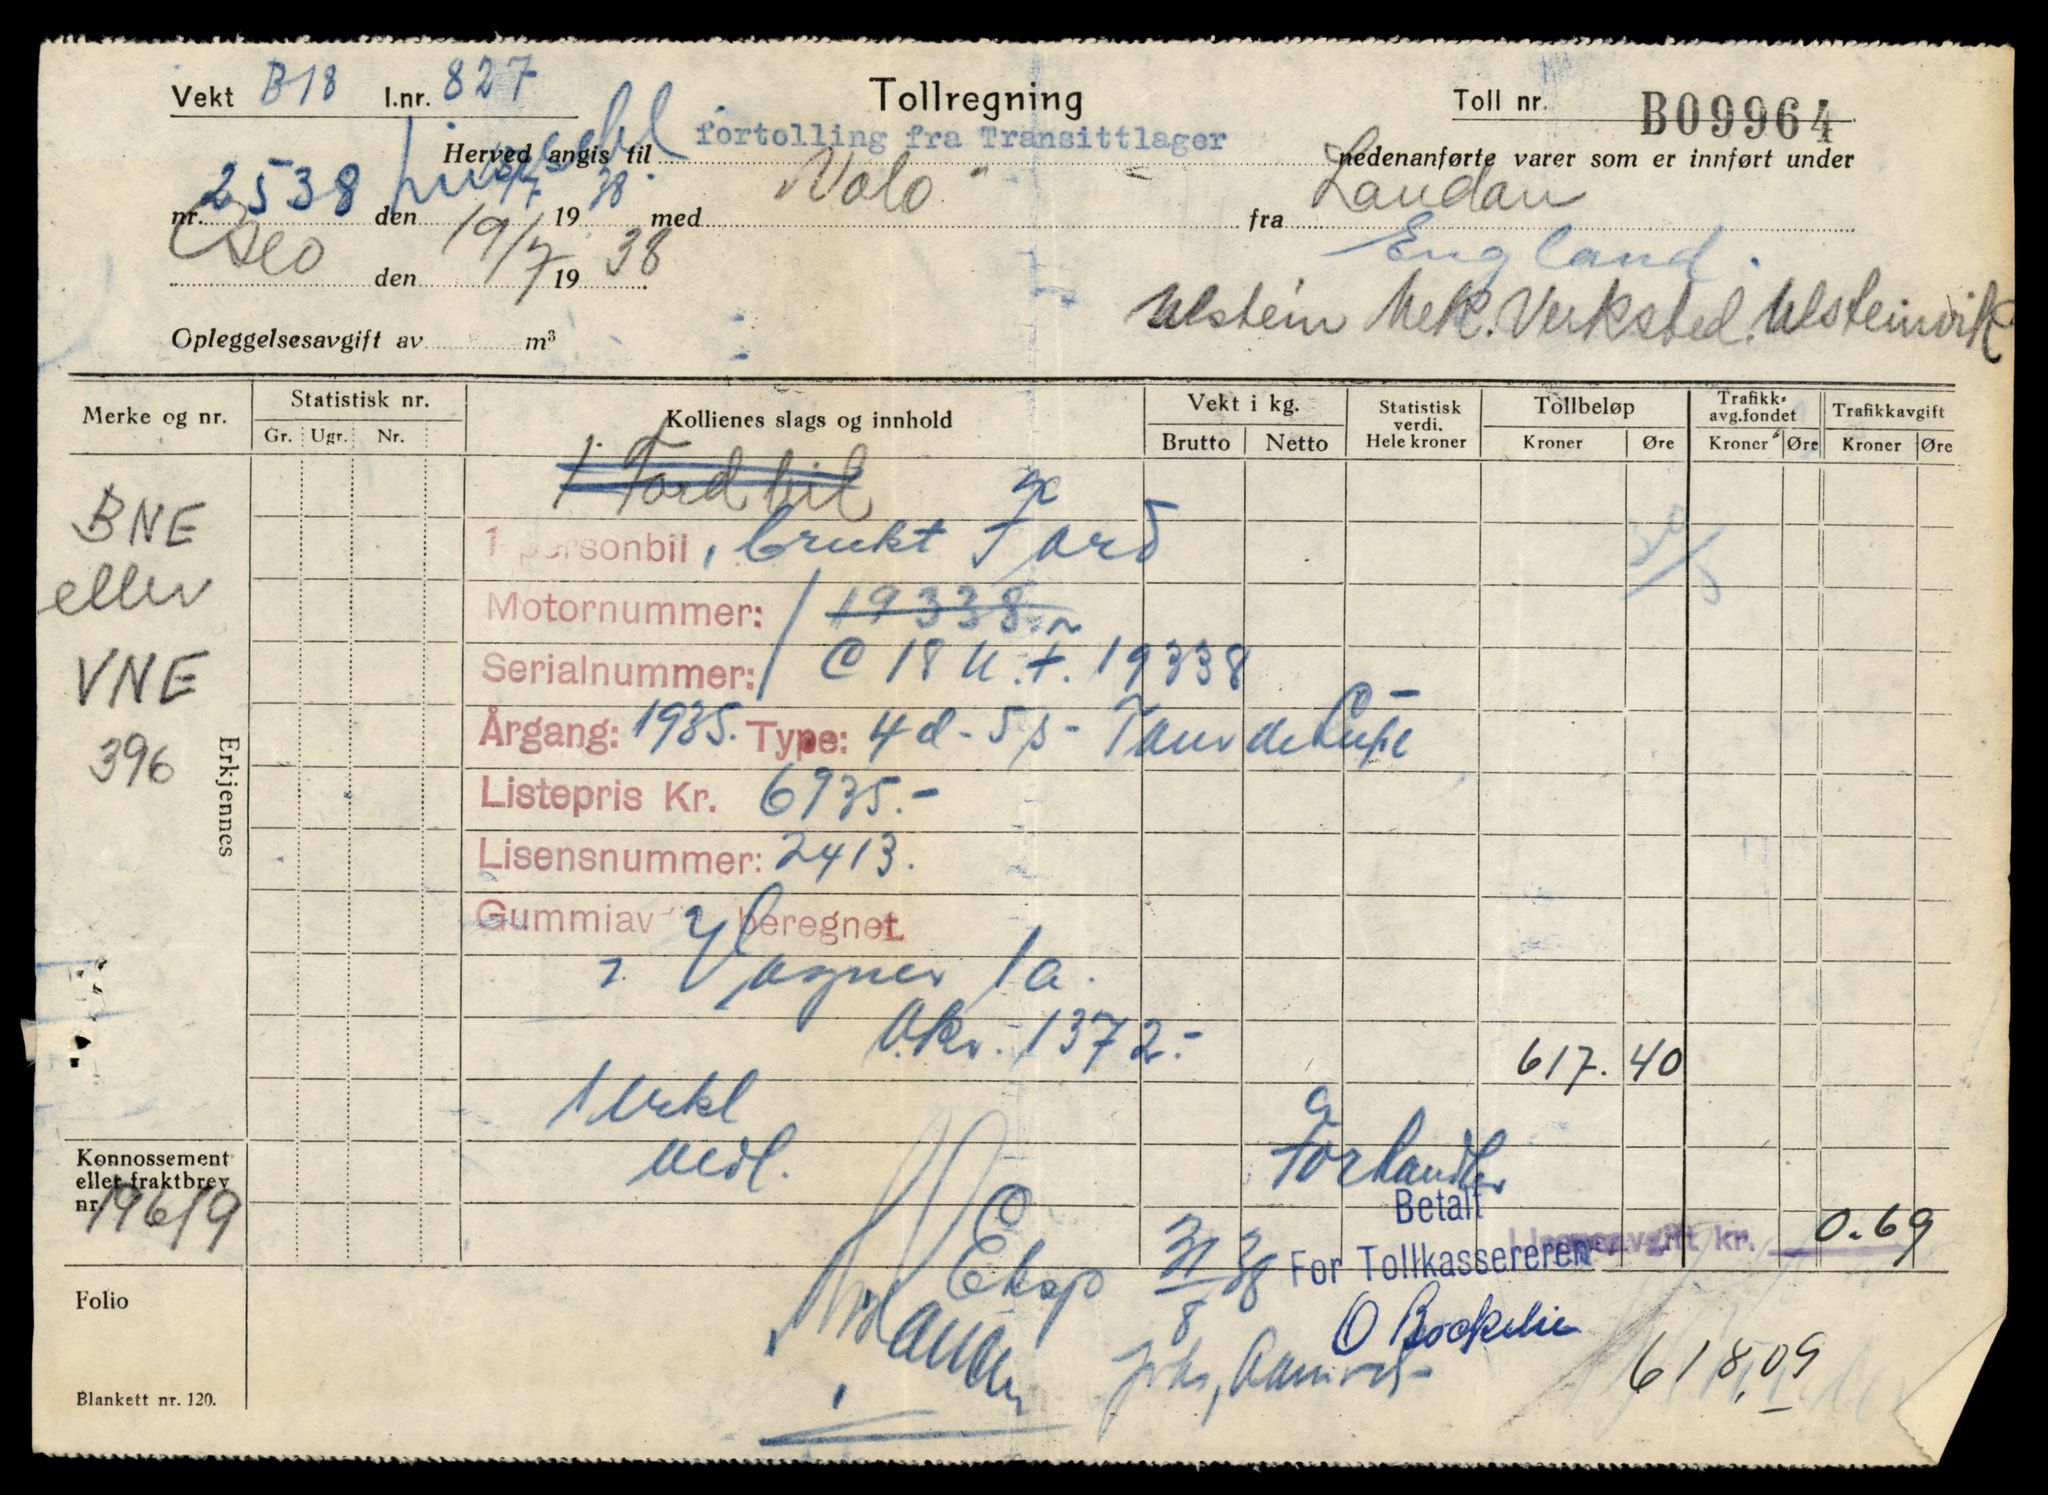 Vekt B18 l.nr. 827
Tollregning
Toll nr. B09964
fortolling fra Transittlager
Herved angis til nedenanførte varer som er innført under
nr. 2538 den 19 38 med "Volo" fra London
England.
Oslo den 19/7 19 38
Ulstein Mek. Verksted. Ulsteinvik
Opleggelsesavgift av m³
Merke og nr. Statistisk nr. Kollienes slags og innhold Vekt i kg. Statistisk verdi. Hele kroner Tollbeløp Trafikk-avg.fondet Trafikkavgift
Gr. Ugr. Nr. Brutto Netto Kroner Øre Kroner Øre Kroner Øre
1 Ford bil
BNE
1 personbil, brukt Ford
eller
Motornummer: 19338
VNE
Serialnummer: C 18 U.F. 19338
396
Årgang: 1935. Type: 4d-5p-
Erkjennes
Listepris Kr. 6935.-
Lisensnummer: 2413.
Gummiav beregnet.
Vogner 1a.
Vkr. 1372.-
617.40
1 urkl
vedl.
Forhandler
Konnossement
eller fraktbrev
nr. 19619
Betalt
Lisensavgift kr. 0.69
For Tollkassereren
Eksp 31/8 38
Folio
618,09
Blankett nr. 120.